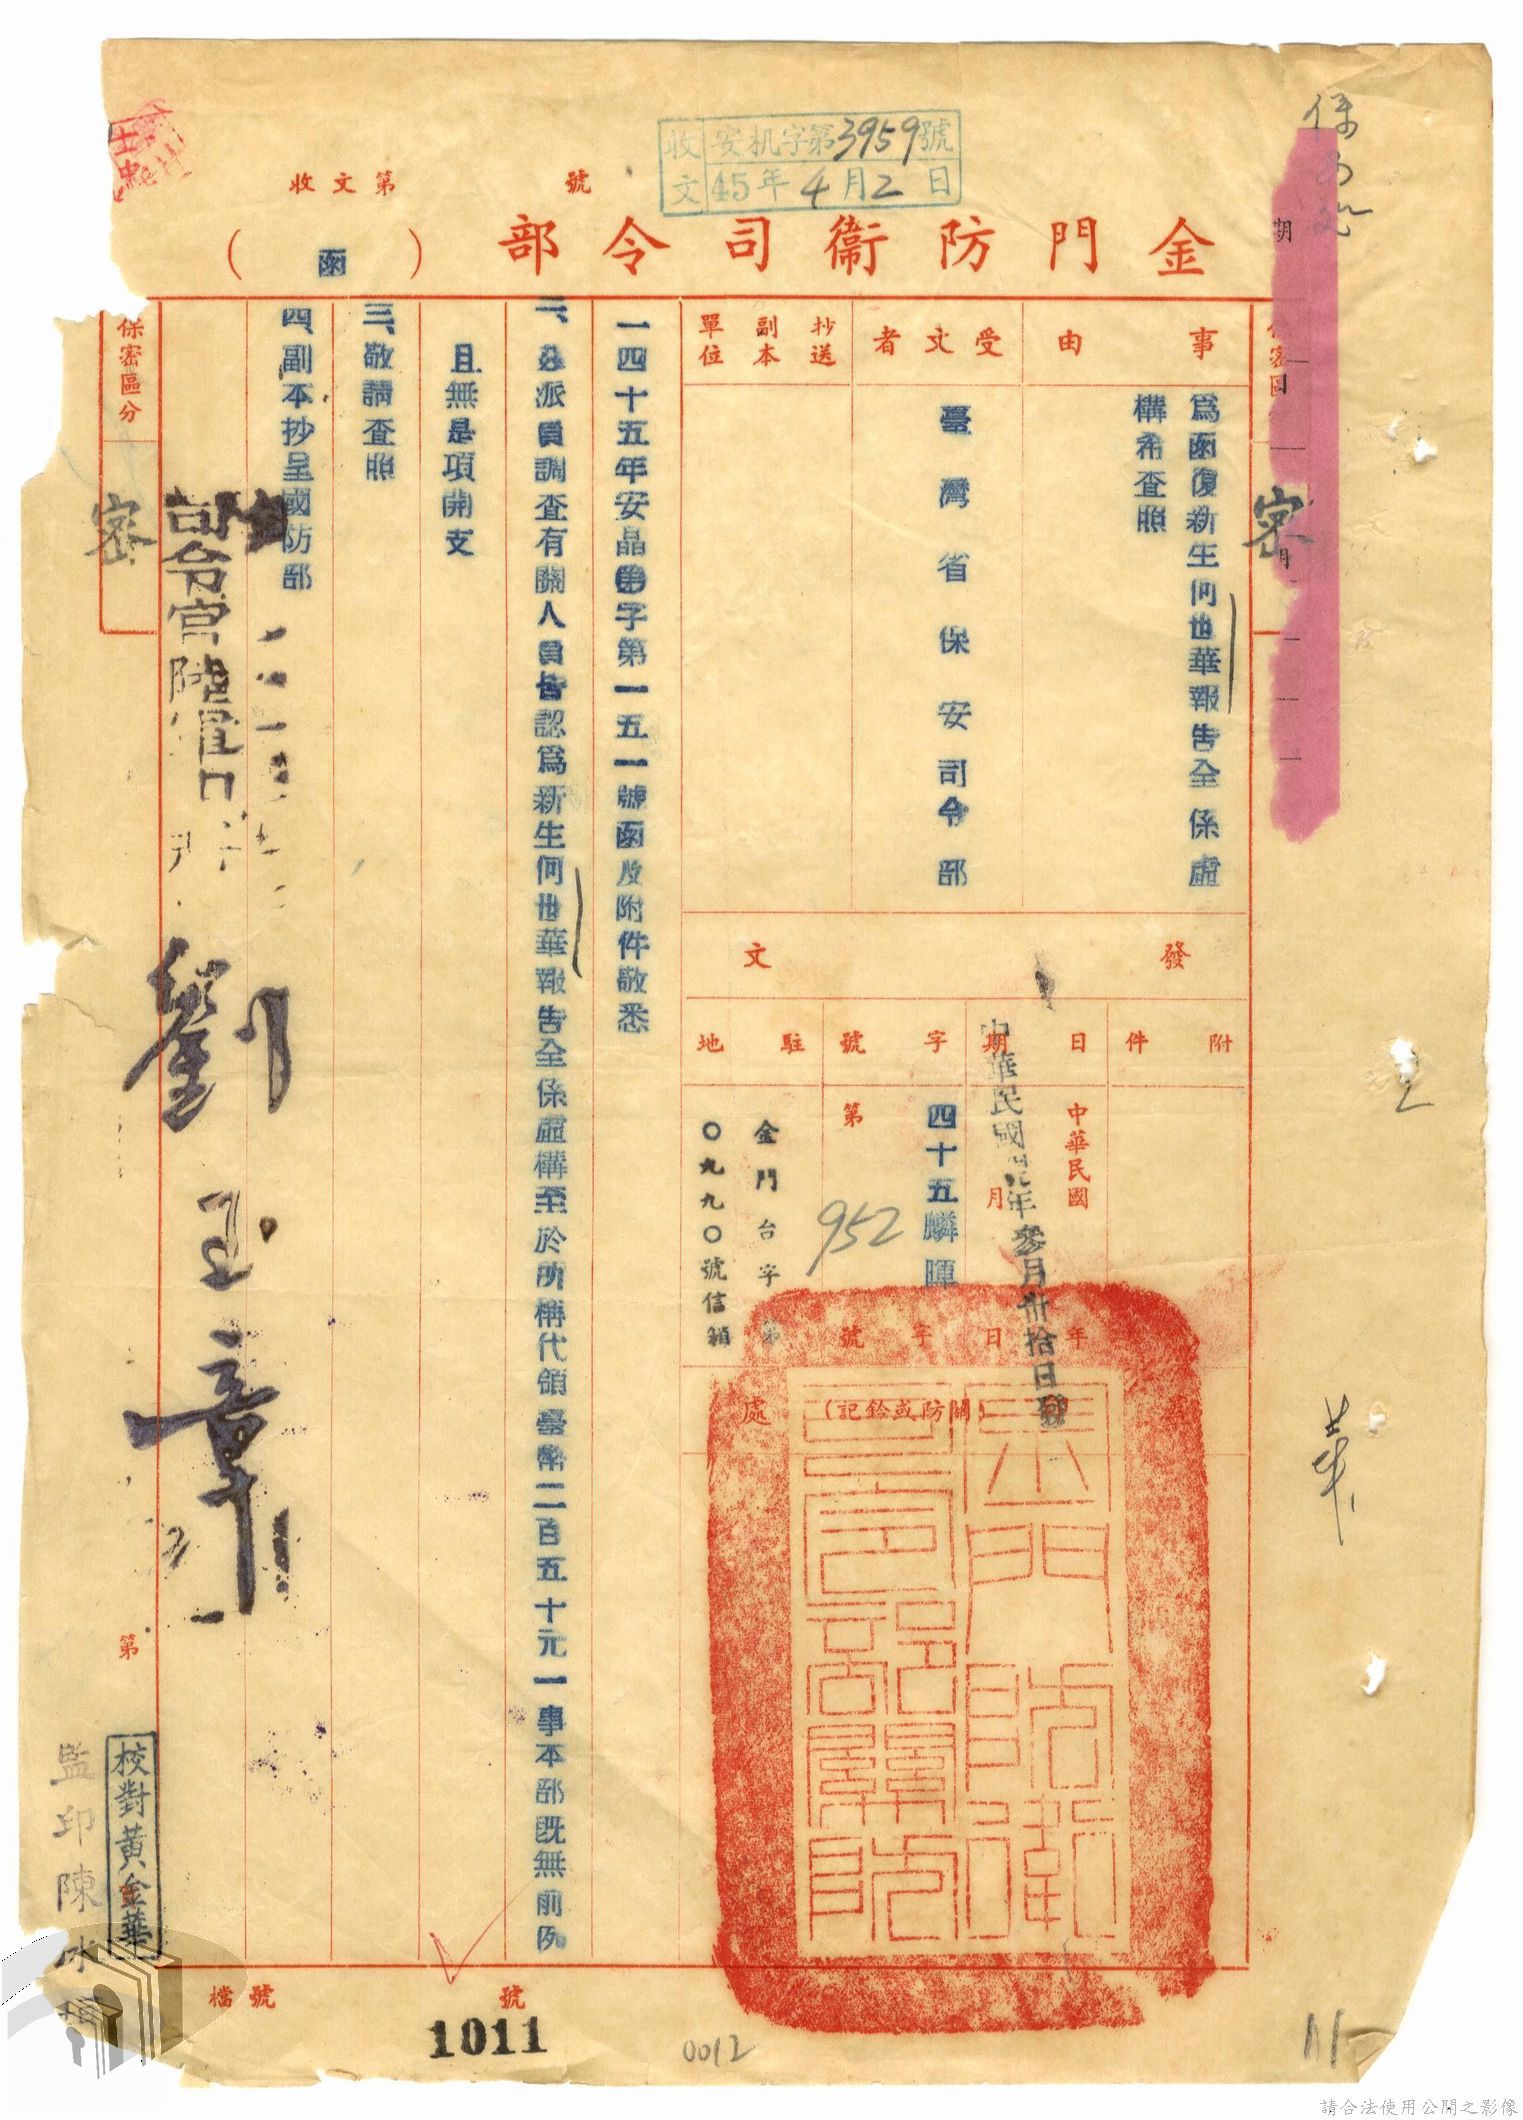 收文 安机字第3959號
45年4月2日
收文第 號
金門防衞司令部(函)
保密區分
密
事由
為函復新生何世華報告全係虛
構希查照
受文者
臺灣省保安司令部
抄送
副本
單位
發文
附件
日期
中華民國 年 月 日
年參月卅拾日發
字號
四十五麟暉字第952號
駐地
金門台字第
〇九九〇號信箱
(關防或鈐記)處
金門防衛
一四十五年安晶字第一五一號函及附件敬悉
二、必派員調查有關人員皆認為新生何世華報告全係虛構至於所稱代領臺幣二百五十元一事本部既無前例
且無是項開支
三、敬請查照
四、副本抄呈國防部
司令官陸軍
劉玉章
保密區分
密
第
校對黃金華
監印陳
檔號
號
1011
0012
11
請合法使用公開之影像